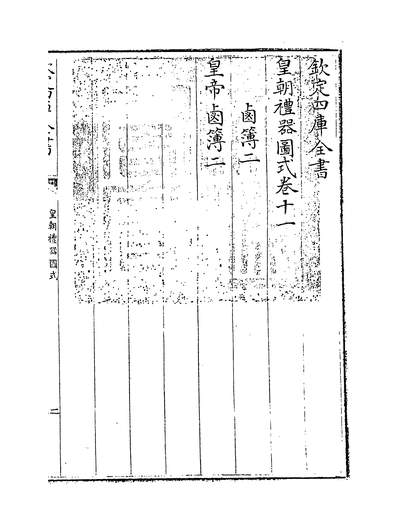 欽定四庫全書
皇朝禮器圖式卷十一
鹵簿二
皇帝鹵簿二
皇朝禮器圖式
二